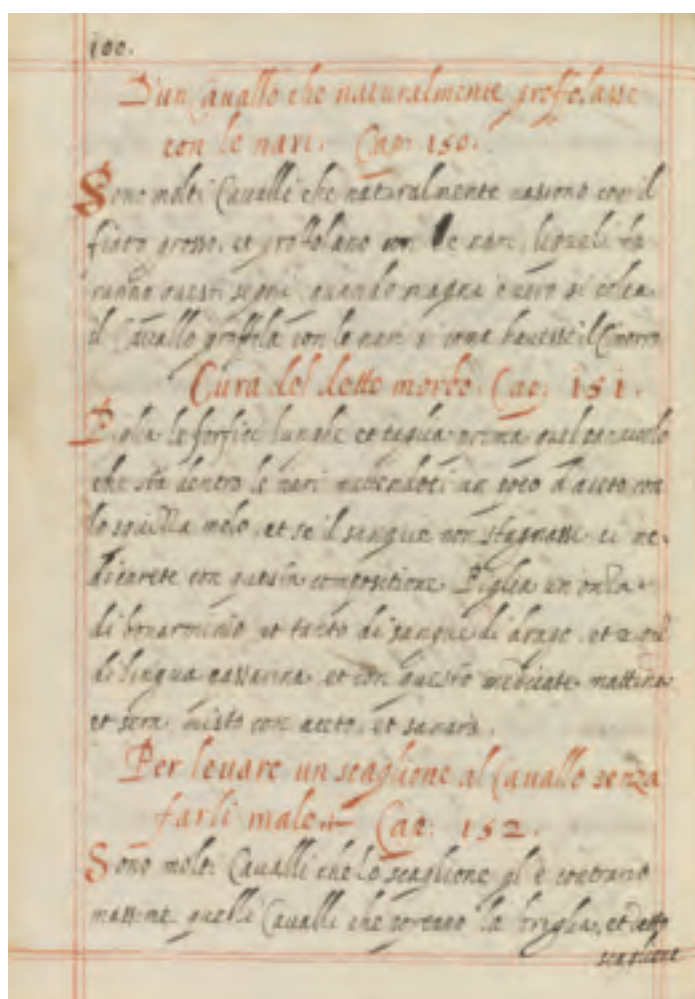 100.
D'un Cauallo che naturalmente groffolasse
con le nari. Cap: 150.
Sono molti Caualli che naturalmente nascono con il
fiato grosso, et groffolano con le nari, liquali ha
ranno questi segni, quando magna o uero si colca
il Cauallo groffola con le nari si come hauesse il Cimorro
Cura del detto morbo. Cap: 151.
Piglia le forfici lunghe et taglia prima quel
che sta dentro le nari mettendoci un poco d'aceto con
lo et se il sangue non stagnasse ui me.
dicarete con questa compositione. Piglia un onza
di bonarminio et tanto di sangue di drago, et 2 onz
di lingua passarina et con questo medicate mattina
et sera misto con aceto, et sanarà.
Per leuare un scaglione al Cauallo senza
farli male. Cap: 152.
Sono molti Caualli che lo scaglione gl'è contrario
massime quelli Caualli che la briglia, et detto
scaglione